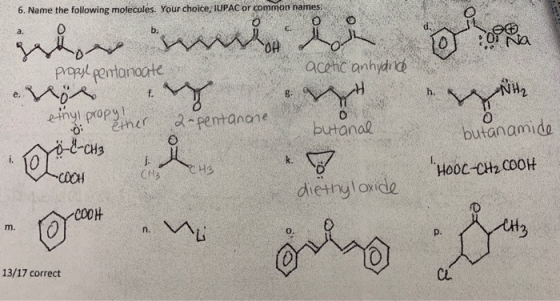 6. Name the following molecules. Your choice, IUPAC or common names:
a.
b.
c.
d.
O
O
O
OH
O
O
O
O
O
⊖ ⊕
Na
propyl pentanoate
acetic anhydride
e.
f.
g.
h.
O
O
H
O
NH2
O
ethyl propyl
ether
2-pentanone
butanal
butanamide
i.
j.
k.
l.
O
O-C-CH3
COOH
O
CH3
CH3
O
HOOC-CH2COOH
diethyl oxide
m.
n.
o.
p.
COOH
Li
O
O
CH3
Cl
13/17 correct